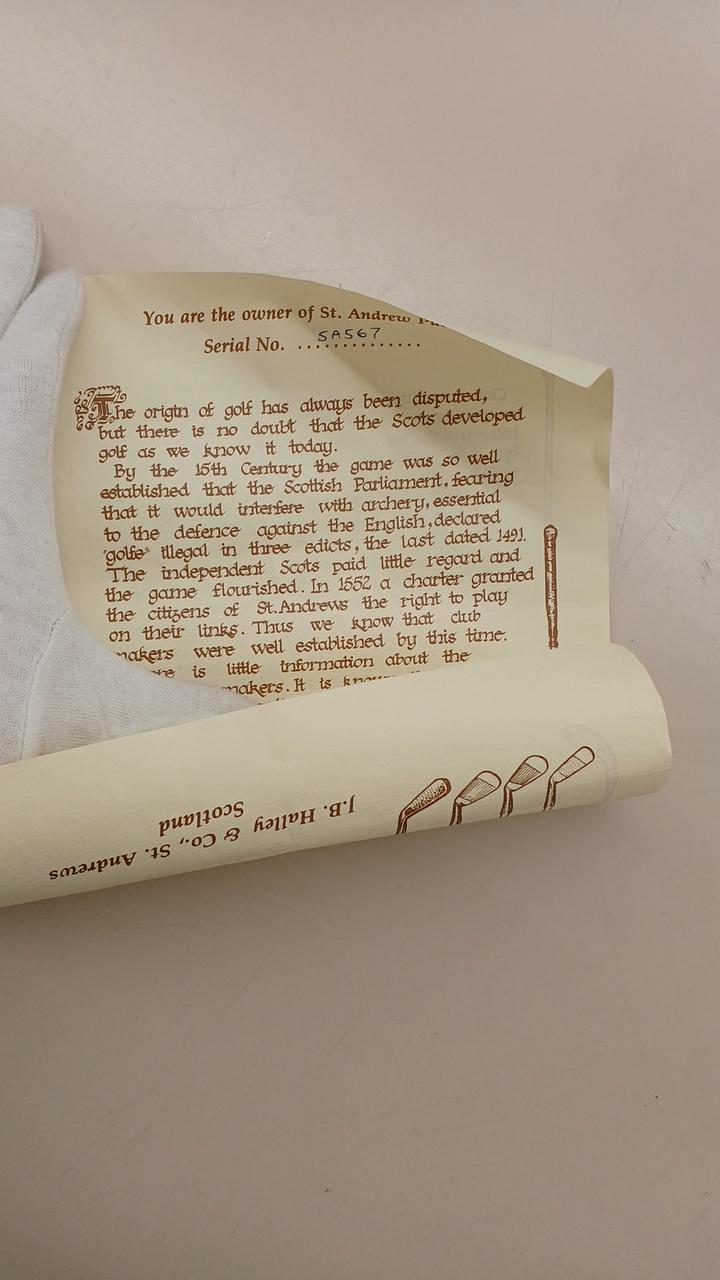 You are the owner of St. Andrew
Serial No. .............. SA567
The origin of golf has always been disputed,
but there is no doubt that the Scots developed
golf as we know it today.
By the 15th Century the game was so well
established that the Scottish Parliament, fearing
that it would interfere with archery, essential
to the defence against the English, declared
"golfe" illegal in three edicts, the last dated 1491.
The independent Scots paid little regard and
the game flourished. In 1552 a charter granted
the citizens of St. Andrews the right to play
on their links. Thus we know that club
makers were well established by this time.
is little information about the
makers. It is
J.B. Halley & Co., St. Andrews
Scotland